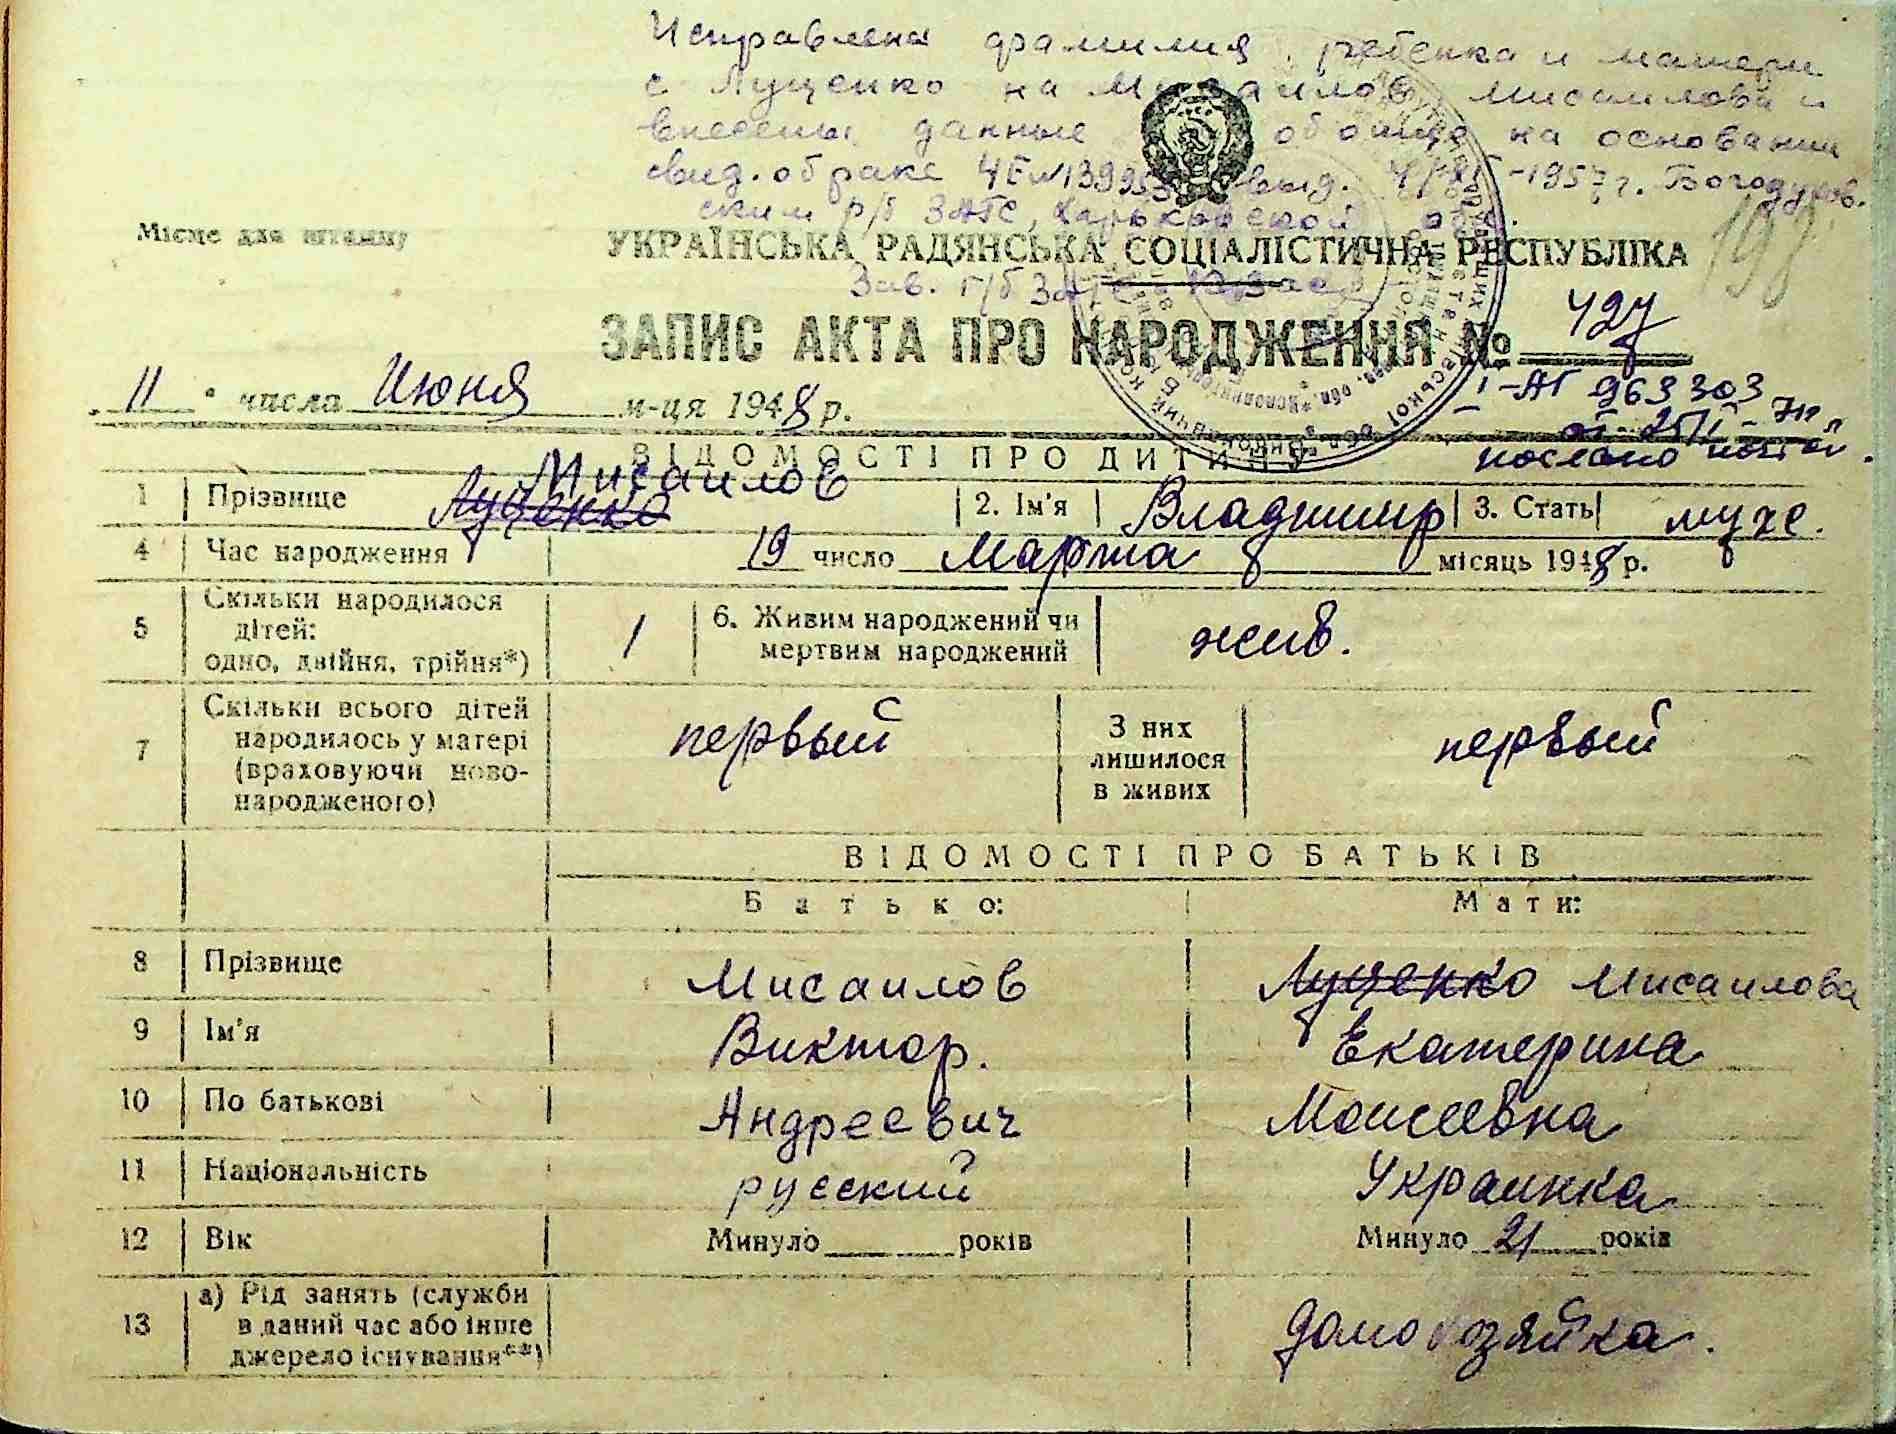 Исправлена фамилия ребенка и матери
с Лущенко на Мисаилов, Мисаилова и
внесены данные об отце на основании
свид. о браке ЧЕ № 139953 выд. 1957 г. Богодухов.
ским р/б ЗАГС, Харьковской обл.
Место для штампу
УКРАЇНСЬКА РАДЯНСЬКА СОЦІАЛІСТИЧНА РЕСПУБЛІКА
198
Зав. г/б ЗАГС
ЗАПИС АКТА ПРО НАРОДЖЕННЯ № 427
„11" числа Июня м-ця 1948 р.
І-АГ 963303
от 25/І-71г
послано почтой.
ВІДОМОСТІ ПРО ДИТИНУ
Мисаилов
1 Прізвище Лущенко 2. Ім'я Владимир 3. Стать муж.
4 Час народження 19 число Марта місяць 1948 р.
5 Скільки народилося дітей: одно, двійня, трійня*) 1 6. Живим народжений чи мертвим народжений жив.
7 Скільки всього дітей народилось у матері (враховуючи ново-народженого) первый З них лишилося в живих первый
ВІДОМОСТІ ПРО БАТЬКІВ
Батько: Мати:
8 Прізвище Мисаилов Лущенко Мисаилова
9 Ім'я Виктор. Екатерина
10 По батькові Андреевич Моисеевна
11 Національність русский Украинка
12 Вік Минуло років Минуло 21 років
13 а) Рід занять (служби в даний час або інше джерело існування**) домохозяйка.